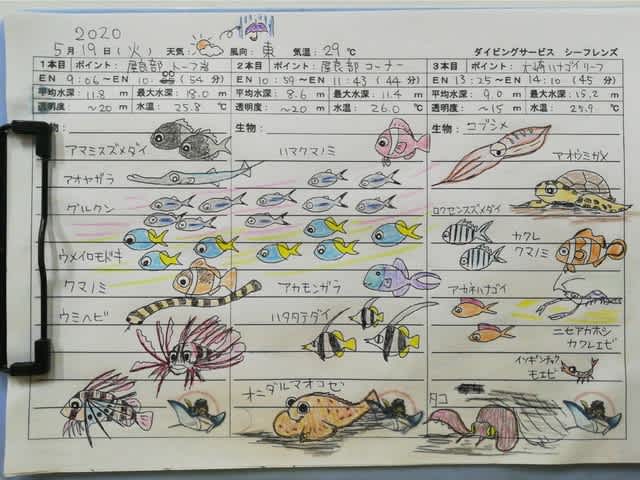 2020
5月19日(火) 天気: 風向:東 気温:29℃ ダイビングサービス シーフレンズ
1本目 ポイント:屋良部 トーフ岩
EN 9:06〜EN 10:00(54分)
平均水深:11.8m 最大水深:18.0m
透明度:〜20m 水温:25.8℃
生物:
アマミスズメダイ
アオヤガラ
グルクン
ウメイロモドキ
クマノミ
ウミヘビ
2本目 ポイント:屋良部コーナー
EN 10:59〜EN 11:43(44分)
平均水深:8.6m 最大水深:11.4m
透明度:〜20m 水温:26.0℃
生物:
ハマクマノミ
アカモンガラ
ハタタテダイ
オニダルマオコゼ
3本目 ポイント:大崎ハナゴイリーフ
EN 13:25〜EN 14:10(45分)
平均水深:9.0m 最大水深:15.2m
透明度:〜15m 水温:25.9℃
生物:コブシメ
アオウミガメ
ロクセンスズメダイ
カクレ
クマノミ
アカネハナゴイ
ニセアカホシ
カクレエビ
イソギンチャク
モエビ
タコ